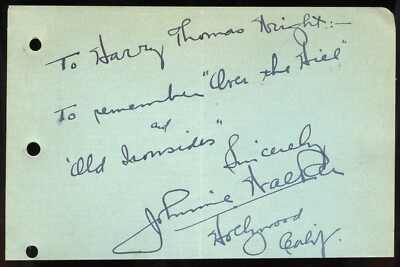 To Harry Thomas Wright:-
To remember "Over the Hill"
and
"Old Ironsides"
Sincerely
Johnnie Walker
Hollywood
Calif.